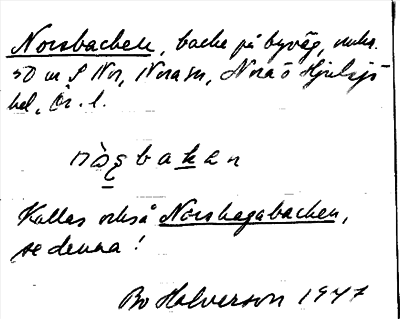 Norsbacken, backe på byväg, omkr.
50 m S Nor, Nora sn, Nora o Hjulsjö
bel, Ör. l.
nòṣbakan
Kallas också Norshagabacken,
se denna!
Bo Halverson 1947